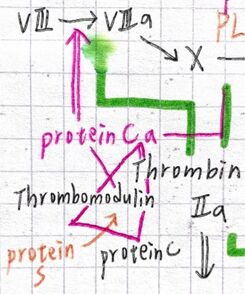 VIII → VIIa
X
PL
protein Ca
Thrombin
Thrombomodulin
IIa
protein C
protein
S